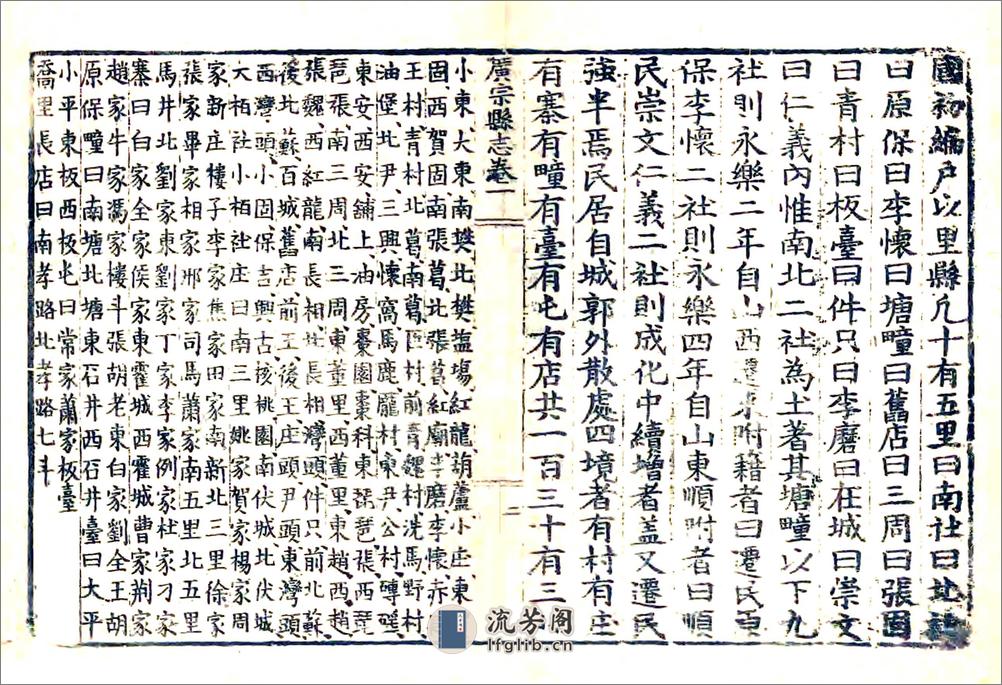 國初編戶以里縣凡十有五里曰南社曰北社
曰原保曰李懷曰塘疃曰舊店曰三周曰張固
曰青村曰板臺曰件只曰李磨曰在城曰崇文
曰仁義內惟南北二社為土著其塘疃以下九
社則永樂二年自山西遷來附籍者曰遷民原
保李懷二社則永樂四年自山東順附者曰順
民崇文仁義二社則成化中續增者蓋又遷民
強半焉民居自城郭外散處四境者有村有庄
有寨有疃有臺有屯有店共一百三十有三
廣宗縣志卷一
二
小東大東南樊北樊塩場紅龍葫蘆小庄東
固西賀固南張葛北張葛紅廟李磨李懷赤
王村青村北葛南葛 村前魏村洗馬野村
油堡北尹三興懷窩馬鹿龎村東尹公村磚
東安西安舖上油房棗園棗科東琵琶張西琵
琶張南三周北三周東董里西董里東趙西趙
張魏西紅龍南長相北長相灣頭件只前北蘇
後北蘇百城舊店前王後王庄頭尹頭東灣頭
西灣頭小固保吉興古核桃園南伏城北伏城
大柏社小柏社庄曰南三里姚家賀家楊家周
家新庄樓子李家焦家田家南新北三里徐家
張家畢家相家邢家司馬蕭家南五里北五里
馬井北劉家東劉家丁家李家例家杜家刁家
寨曰白家全家侯家東霍城西霍城曹家荊家
趙家牛家馮家樓斗張胡老東白家劉全王胡
原保疃曰南塘北塘東石井西石井臺曰大平
小平東板西板屯曰常家蕭家板臺
喬里長店曰南孝路北孝路七
流芳阁
lfglib.cn